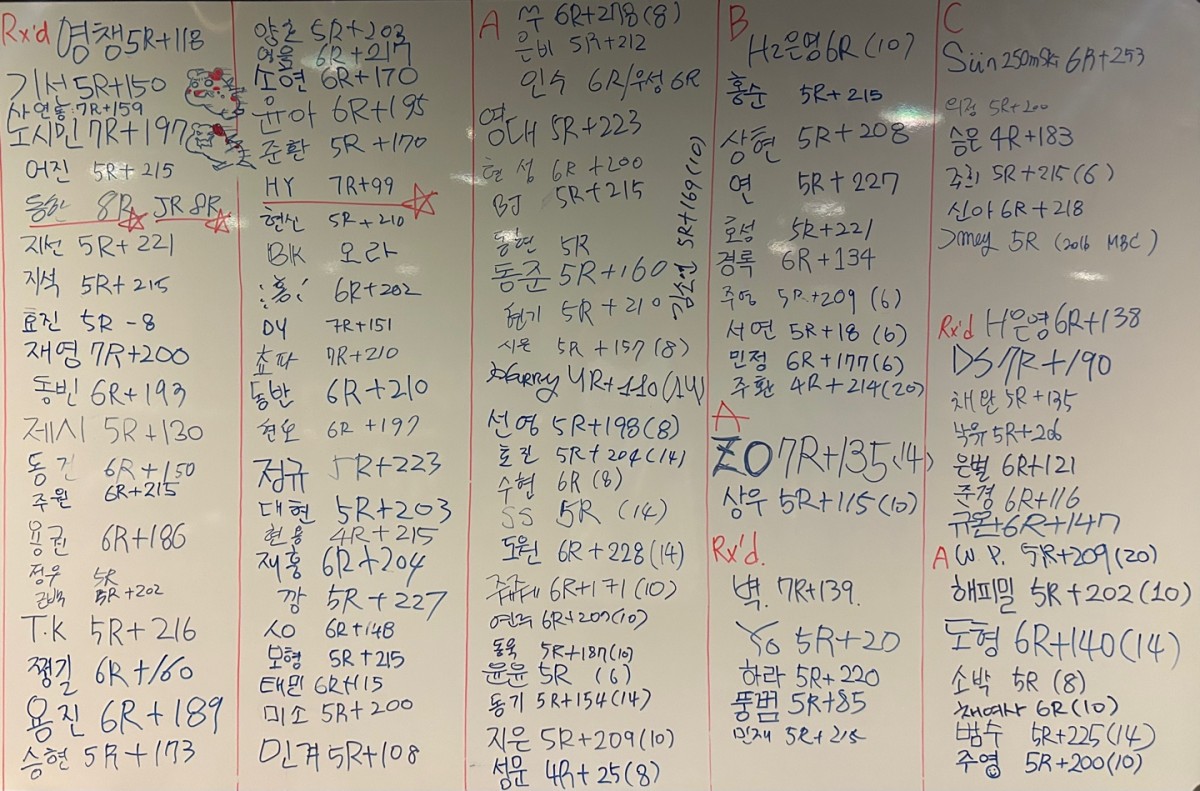 Rx'd 영챙 5R+118
기선 5R+150
사연농: 7R+159
노시민 7R+197
어진 5R+215
동한 8R JR 8R
지선 5R+221
지석 5R+215
효진 5R-8
재영 7R+200
동빈 6R+193
제시 5R+130
동건 6R+150
주원 6R+215
용권 6R+186
정우 5R
5R+202
T.K 5R+216
쩡길 6R+160
용진 6R+189
승현 5R+173
양호 5R+203
여울 6R+217
소현 6R+170
윤아 6R+195
준환 5R+170
HY 7R+99
현신 5R+210
BK 오라
홍 6R+202
DY 7R+151
쵸파 7R+210
동반 6R+210
현오 6R+197
정규 5R+223
대현 5R+203
현용 4R+215
재홍 6R+204
깡 5R+227
SO 6R+148
보형 5R+215
태민 6R+115
미소 5R+200
민계 5R+108
A 쑤 6R+278(8)
은비 5R+212
인수 6R/우성 6R
영대 5R+223
현성 6R+200
BJ 5R+215
김소연 5R+169(10)
동현 5R
동준 5R+160
현기 5R+210
시온 5R+157(8)
Harry 4R+110(14)
선영 5R+198(8)
효진 5R+204(14)
수현 6R(8)
SS 5R (14)
도원 6R+228(14)
6R+171(10)
연주 6R+207(10)
동욱 5R+187(10)
윤윤 5R (6)
동기 5R+154(14)
지은 5R+209(10)
성문 4R+25(8)
B
H2은영 6R(10)
홍순 5R+215
상현 5R+208
연 5R+227
효성 5R+221
경록 6R+134
주영 5R+209(6)
서연 5R+18(6)
민정 6R+177(6)
주환 4R+214(20)
A
ZO 7R+135(14)
상우 5R+115(10)
Rx'd.
벽. 7R+139.
Yo 5R+20
하라 5R+220
뚱범 5R+85
민재 5R+215
C
Siin 250m Ski 6R+253
의정 5R+200
승은 4R+183
주희 5R+215(6)
신아 6R+218
Jmey 5R (2016 MBC)
Rx'd H은영 6R+138
DS 7R+190
채반 5R+135
낙유 5R+206
은별 6R+121
준경 6R+116
규온 6R+147
A W P. 5R+209(20)
해피밀 5R+202(10)
도형 6R+140(14)
소박 5R (8)
채여사 6R(10)
범수 5R+225(14)
주영 5R+200(10)